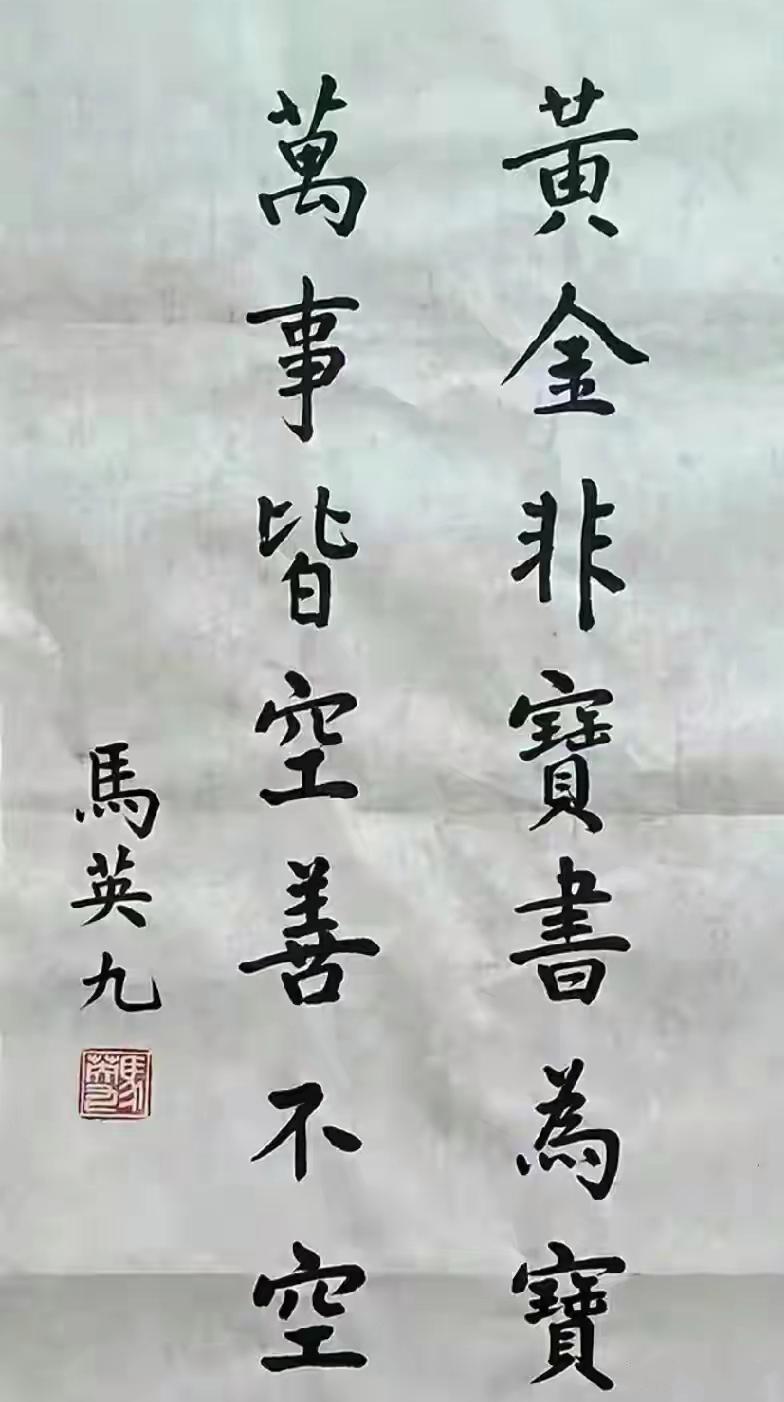 黃金非寶書為寶
萬事皆空善不空
馬英九
馬英九